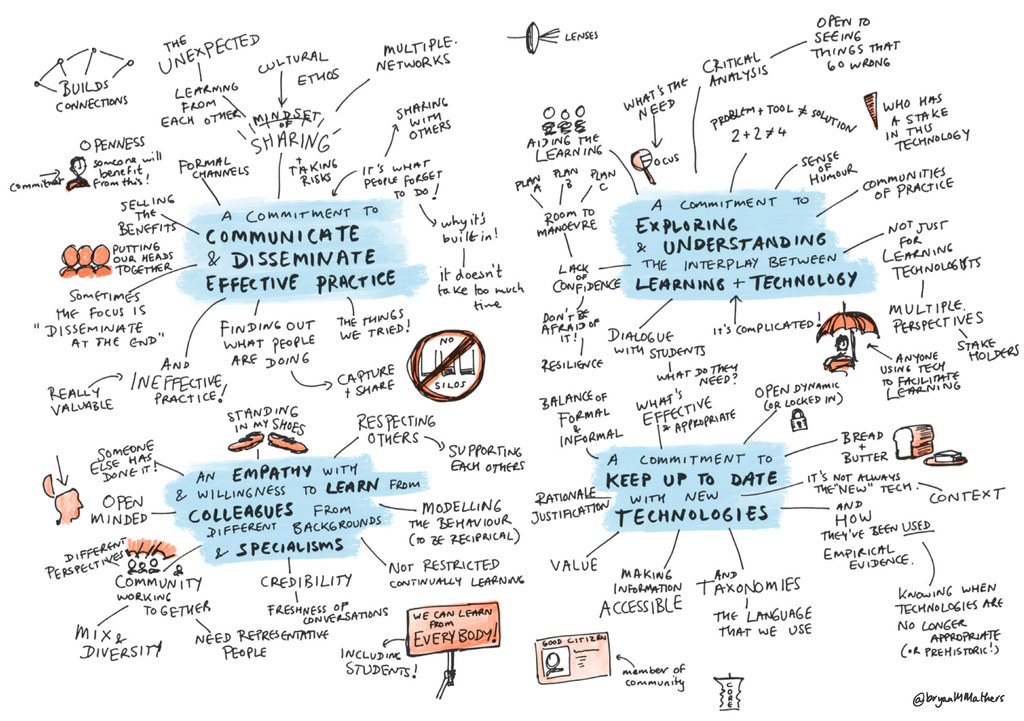 BUILDS
CONNECTIONS
THE
UNEXPECTED
LEARNING
FROM
EACH OTHER
CULTURAL
ETHOS
MULTIPLE
NETWORKS
MINDSET
OF
SHARING
+
TAKING
RISKS
SHARING
WITH
OTHERS
IT'S WHAT
PEOPLE FORGET
TO DO!
why it's
built in!
it doesn't
take too much
time
OPENNESS
commitment
someone will
benefit
from this!
FORMAL
CHANNELS
SELLING
THE
BENEFITS
PUTTING
OUR HEADS
TOGETHER
SOMETIMES
THE FOCUS IS
"DISSEMINATE
AT THE END"
A COMMITMENT TO
COMMUNICATE
& DISSEMINATE
EFFECTIVE PRACTICE
REALLY
VALUABLE
AND
INEFFECTIVE
PRACTICE!
FINDING OUT
WHAT PEOPLE
ARE DOING
CAPTURE
+ SHARE
THE THINGS
WE TRIED!
NO
SILOS
LENSES
WHAT'S THE
NEED
FOCUS
CRITICAL
ANALYSIS
OPEN TO
SEEING
THINGS THAT
GO WRONG
PROBLEM + TOOL ≠ SOLUTION
2 + 2 ≠ 4
WHO HAS
A STAKE
IN THIS
TECHNOLOGY
SENSE
OF
HUMOUR
COMMUNITIES
OF PRACTICE
AIDING THE
LEARNING
PLAN
A
PLAN
B
PLAN
C
ROOM TO
MANOEVRE
LACK
OF
CONFIDENCE
DON'T BE
AFRAID OF
IT!
RESILIENCE
A COMMITMENT TO
EXPLORING
& UNDERSTANDING
THE INTERPLAY BETWEEN
LEARNING + TECHNOLOGY
NOT JUST
FOR
LEARNING
TECHNOLOGISTS
MULTIPLE
PERSPECTIVES
STAKE
HOLDERS
ANYONE
USING TECH
TO FACILITATE
LEARNING
IT'S COMPLICATED!
DIALOGUE
WITH STUDENTS
WHAT DO THEY
NEED?
STANDING
IN MY SHOES
RESPECTING
OTHERS
SUPPORTING
EACH OTHERS
SOMEONE
ELSE HAS
DONE IT!
OPEN
MINDED
AN EMPATHY WITH
& WILLINGNESS TO LEARN FROM
COLLEAGUES FROM
DIFFERENT BACKGROUNDS
& SPECIALISMS
MODELLING
THE BEHAVIOUR
(TO BE RECIPRICAL)
NOT RESTRICTED
CONTINUALLY LEARNING
DIFFERENT
PERSPECTIVES
&
COMMUNITY
WORKING
TOGETHER
MIX &
DIVERSITY
NEED REPRESENTATIVE
PEOPLE
CREDIBILITY
FRESHNESS OF
CONVERSATIONS
INCLUDING
STUDENTS!
WE CAN LEARN
FROM
EVERYBODY!
BALANCE OF
FORMAL
&
INFORMAL
WHAT'S
EFFECTIVE
& APPROPRIATE
OPEN DYNAMIC
(OR LOCKED IN)
BREAD
+
BUTTER
A COMMITMENT TO
KEEP UP TO DATE
WITH NEW
TECHNOLOGIES
IT'S NOT ALWAYS
THE "NEW" TECH.
CONTEXT
AND
HOW
THEY'VE BEEN USED
EMPIRICAL
EVIDENCE.
KNOWING WHEN
TECHNOLOGIES ARE
NO LONGER
APPROPRIATE
(OR PREHISTORIC!)
RATIONALE
JUSTIFICATION
VALUE
MAKING
INFORMATION
ACCESSIBLE
AND
TAXONOMIES
THE LANGUAGE
THAT WE USE
GOOD CITIZEN
member of
community
CORE
@bryanMMathers